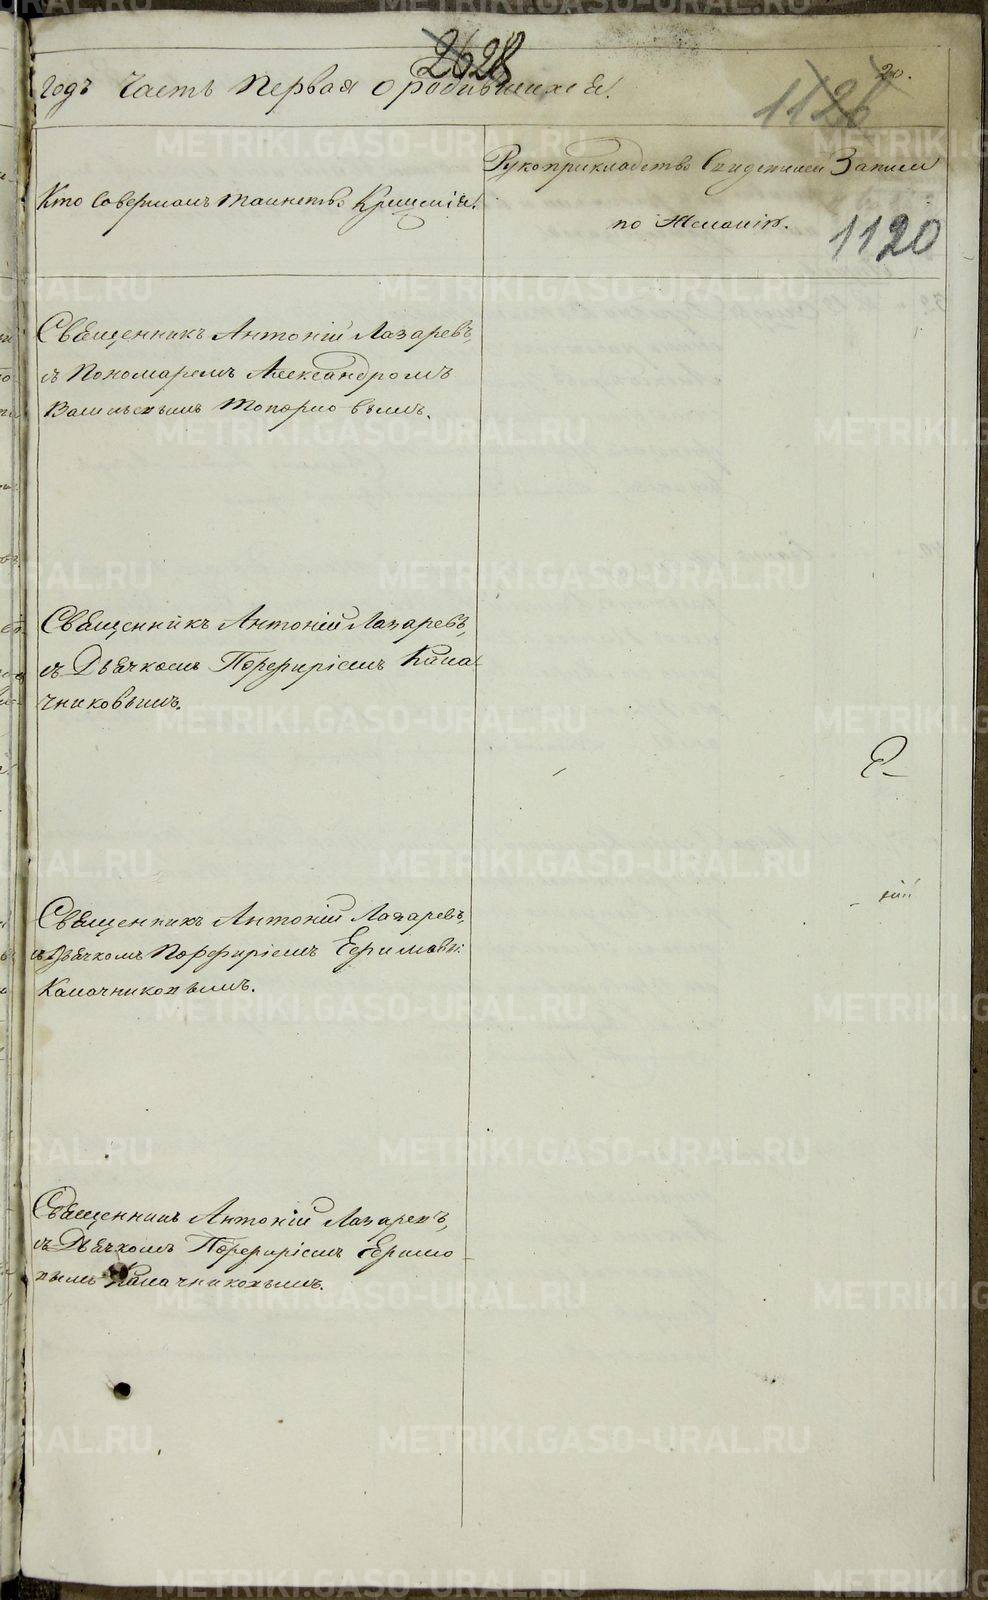 2628
20.
годъ Часть Первая о родившихся.
1126
Кто Совершалъ таинство Крещенія.
Рукоприкладство Свидетелей Записи
по Желанію.
1120
Священникъ Антоній Лазаревъ,
съ Пономаремъ Александромъ
Васильевымъ Топорковымъ.
Священникъ Антоній Лазаревъ,
съ Дьячкомъ Порфиріемъ Кала
чниковымъ.
Священникъ Антоній Лазаревъ,
съ Дьячкомъ Порфиріемъ
Калачниковымъ.
Священникъ Антоній Лазаревъ,
съ Дьячкомъ Порфиріемъ Ефимо
вымъ Калачниковымъ.
METRIKI.GASO-URAL.RU